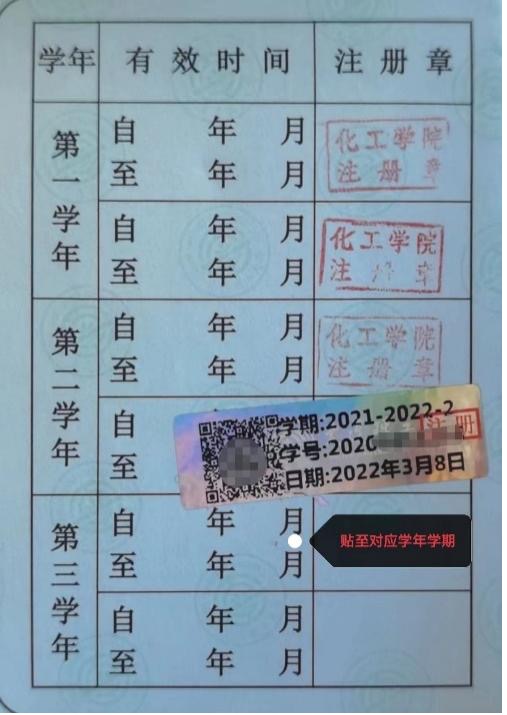 学年 有效时间 注册章
第一学年
自 年 月
至 年 月
化工学院
注册章
自 年 月
至 年 月
化工学院
注册章
第二学年
自 年 月
至 年 月
化工学院
注册章
自
至
学期:2021-2022-2
注册
学号:2020
日期:2022年3月8日
第三学年
自 年 月
至 年 月
贴至对应学年学期
自 年 月
至 年 月